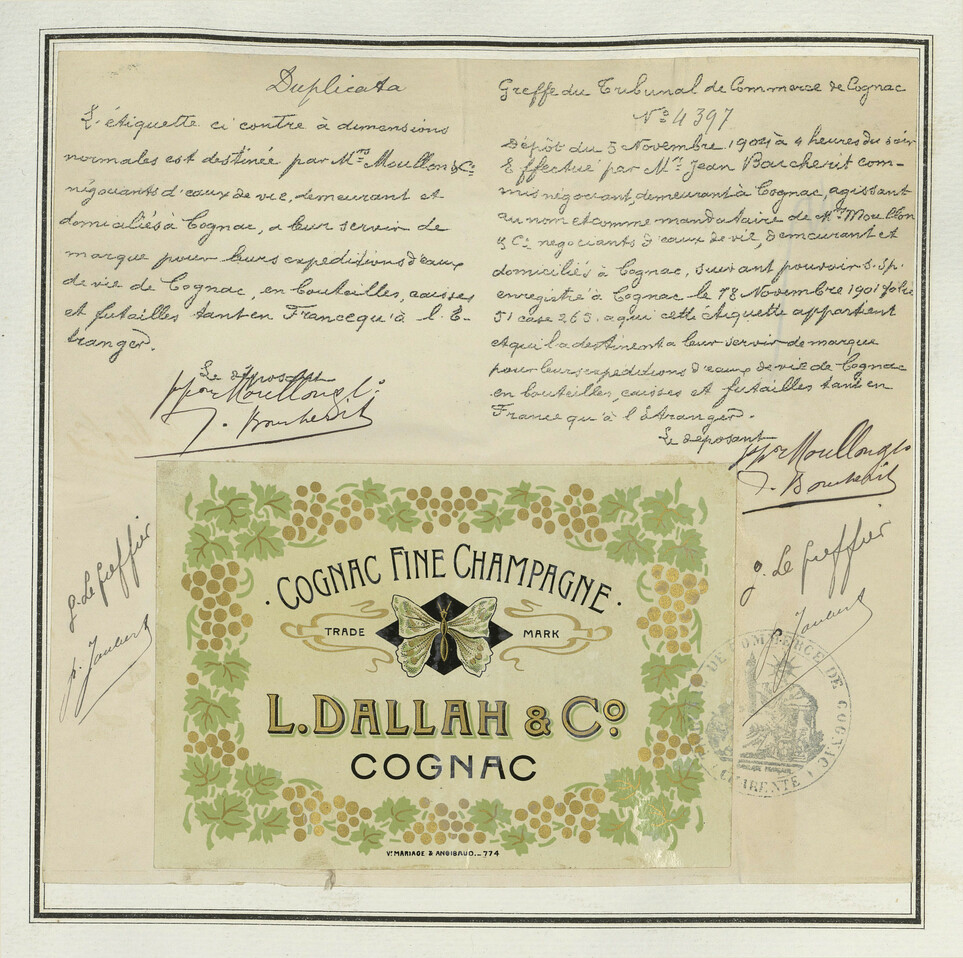 Duplicata
L'étiquette ci contre à dimensions
normales est destinée par Mrs Moullon & Cie
négociants d'eaux de vie, demeurant et
domiciliés à Cognac, a leur servir de
marque pour leurs expeditions d'eaux
de vie de Cognac, en bouteilles, caisses
et futailles tant en France qu'à l'E-
tranger.
Le déposant
ppon Moullon & Co
J. Boucherit
Greffe du Tribunal de Commerce de Cognac
No 4397
Dépôt du 5 Novembre 1904 à 4 heures du soir
Effectué par Mr Jean Boucherit com-
mis négociant, demeurant à Cognac, agissant
au nom et comme mandataire de Mrs Moullon
& Ce négociants d'eaux de vie, demeurant et
domiciliés à Cognac, suivant pouvoir s. sp.
enregistré à Cognac le 18 Novembre 1901 folio
51 case 265. a qui cette étiquette appartient
et qui la destinent a leur servir de marque
pour leurs expeditions d'eaux de vie de Cognac
en bouteilles, caisses et futailles tant en
France qu'à l'étranger.
Le déposant
ppon Moullon & Co
J. Boucherit
Le Greffier
Le Greffier
COGNAC FINE CHAMPAGNE
TRADE MARK
L. DALLAH & Co
COGNAC
Vve MARIAGE & ANGIBAUD._774
DE COMMERCE DE COGNAC
(CHARENTE)